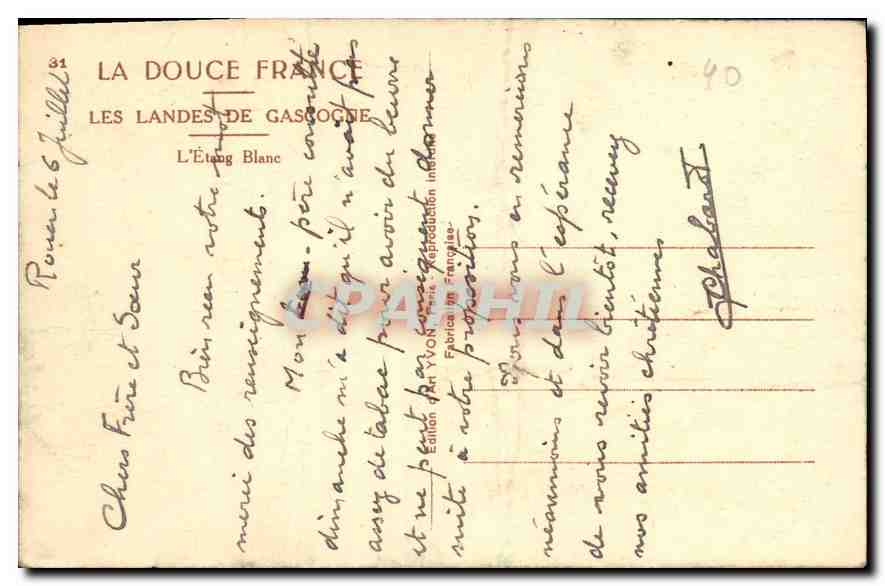 31
LA DOUCE FRANCE
LES LANDES DE GASCOGNE
L'Étang Blanc
Edition d'Art YVON, Paris - Reproduction interdite
Fabrication Française
40
le 6 Juillet
Chers Frère et Sœur
Bien reçu votre mot
merci des renseignements.
Mon père consulté
dimanche m'a dit qu'il n'avait pas
assez de tabac pour avoir du beurre
et ne peut par conséquent donner
suite à votre proposition.
Nous vous en remercions
néanmoins et dans l'espérance
de vous revoir bientôt, recevez
nos amitiés chrétiennes
CPAPHIL